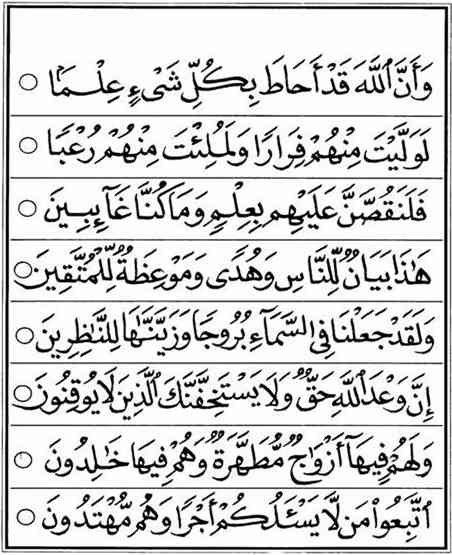 وَأَنَّ ٱللَّهَ قَدْ أَحَاطَ بِكُلِّ شَىْءٍ عِلْمًۢا ○
لَوَلَّيْتَ مِنْهُمْ فِرَارًا وَلَمُلِئْتَ مِنْهُمْ رُعْبًا ○
فَلَنَقُصَّنَّ عَلَيْهِم بِعِلْمٍ وَمَا كُنَّا غَآئِبِينَ ○
هَٰذَا بَيَانٌ لِّلنَّاسِ وَهُدًى وَمَوْعِظَةٌ لِّلْمُتَّقِينَ ○
وَلَقَدْ جَعَلْنَا فِى السَّمَآءِ بُرُوجًا وَزَيَّنَّٰهَا لِلنَّٰظِرِينَ ○
إِنَّ وَعْدَ ٱللَّهِ حَقٌّ وَلَا يَسْتَخِفَّنَّكَ ٱلَّذِينَ لَا يُوقِنُونَ ○
وَلَهُمْ فِيهَآ أَزْوَٰجٌ مُّطَهَّرَةٌ وَهُمْ فِيهَا خَٰلِدُونَ ○
ٱتَّبِعُوا۟ مَن لَّا يَسْـَٔلُكُمْ أَجْرًا وَهُم مُّهْتَدُونَ ○